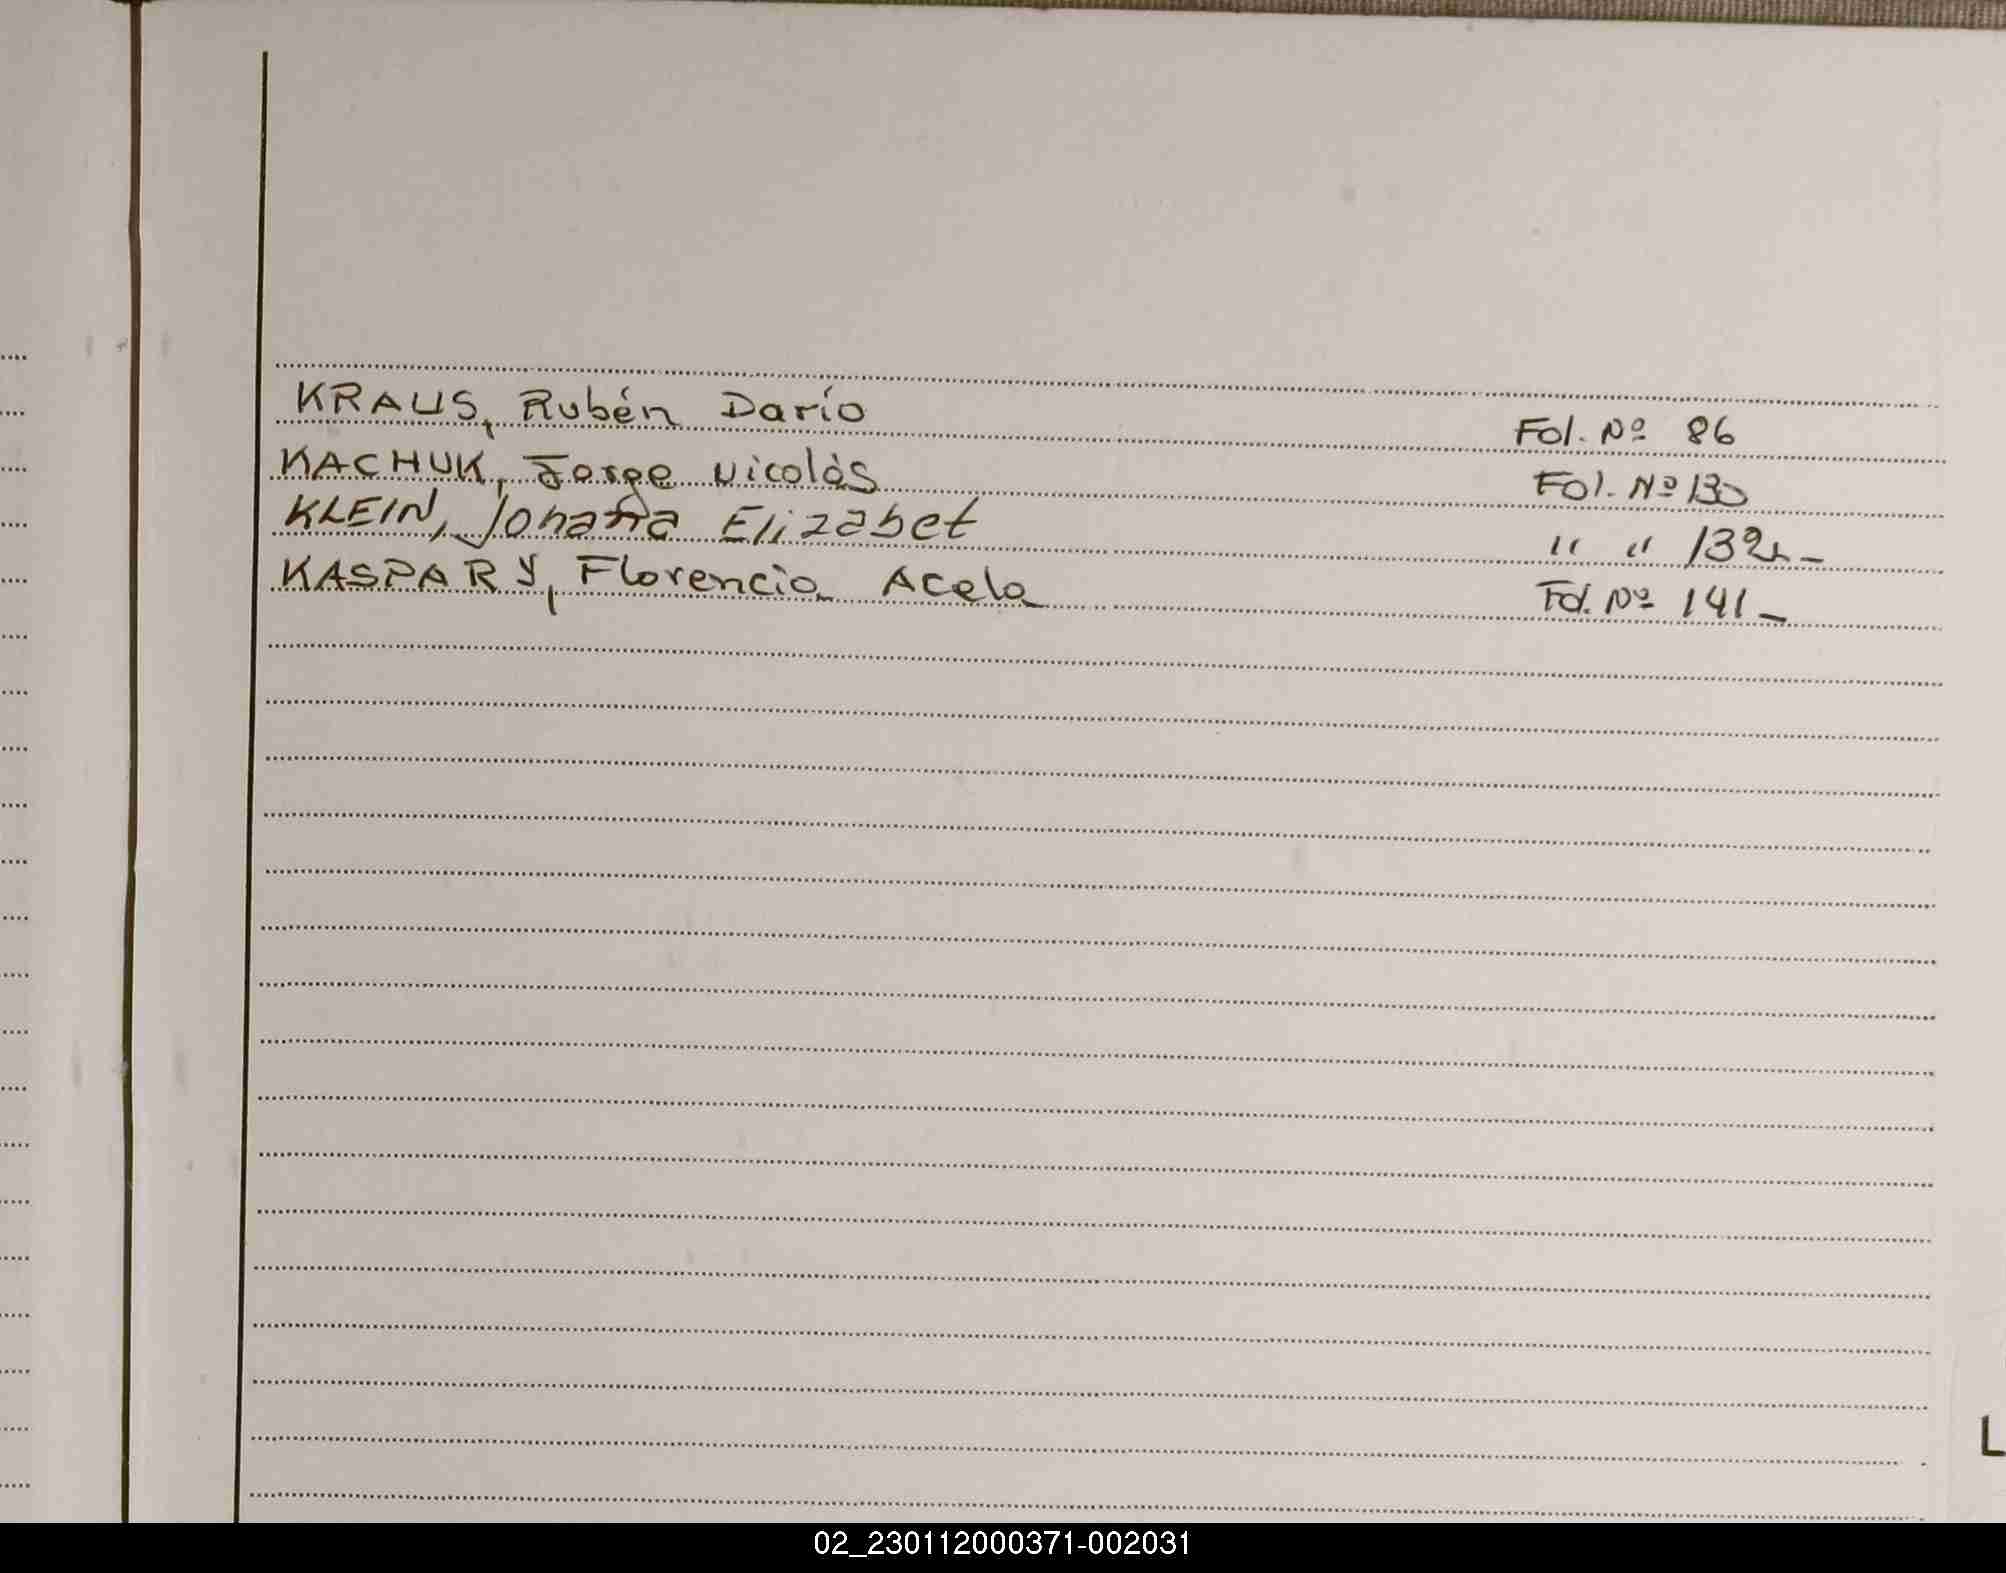 KRAUS, Rubén Darío Fol. Nº 86
KACHUK, Jorge Nicolás Fol. Nº 130
KLEIN, Johana Elizabet " " 132 -
KASPARY, Florencia Acela Fol. Nº 141 -
L
02_230112000371-002031